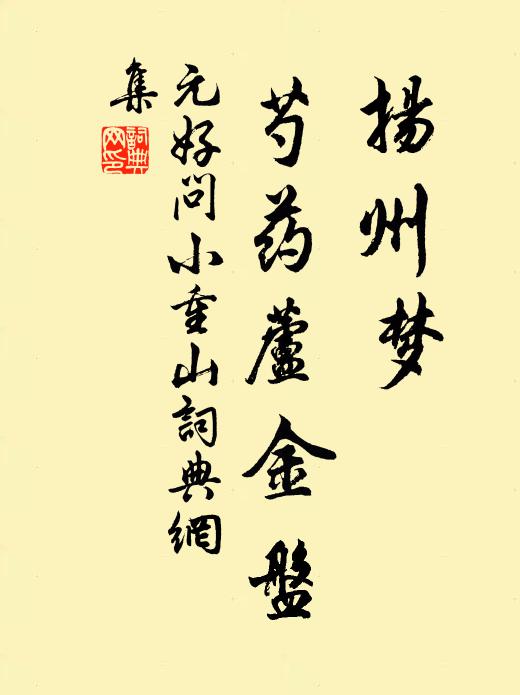 揚州梦
芍药蘆金盤
元好问小重山詞典網
集
詞典网印